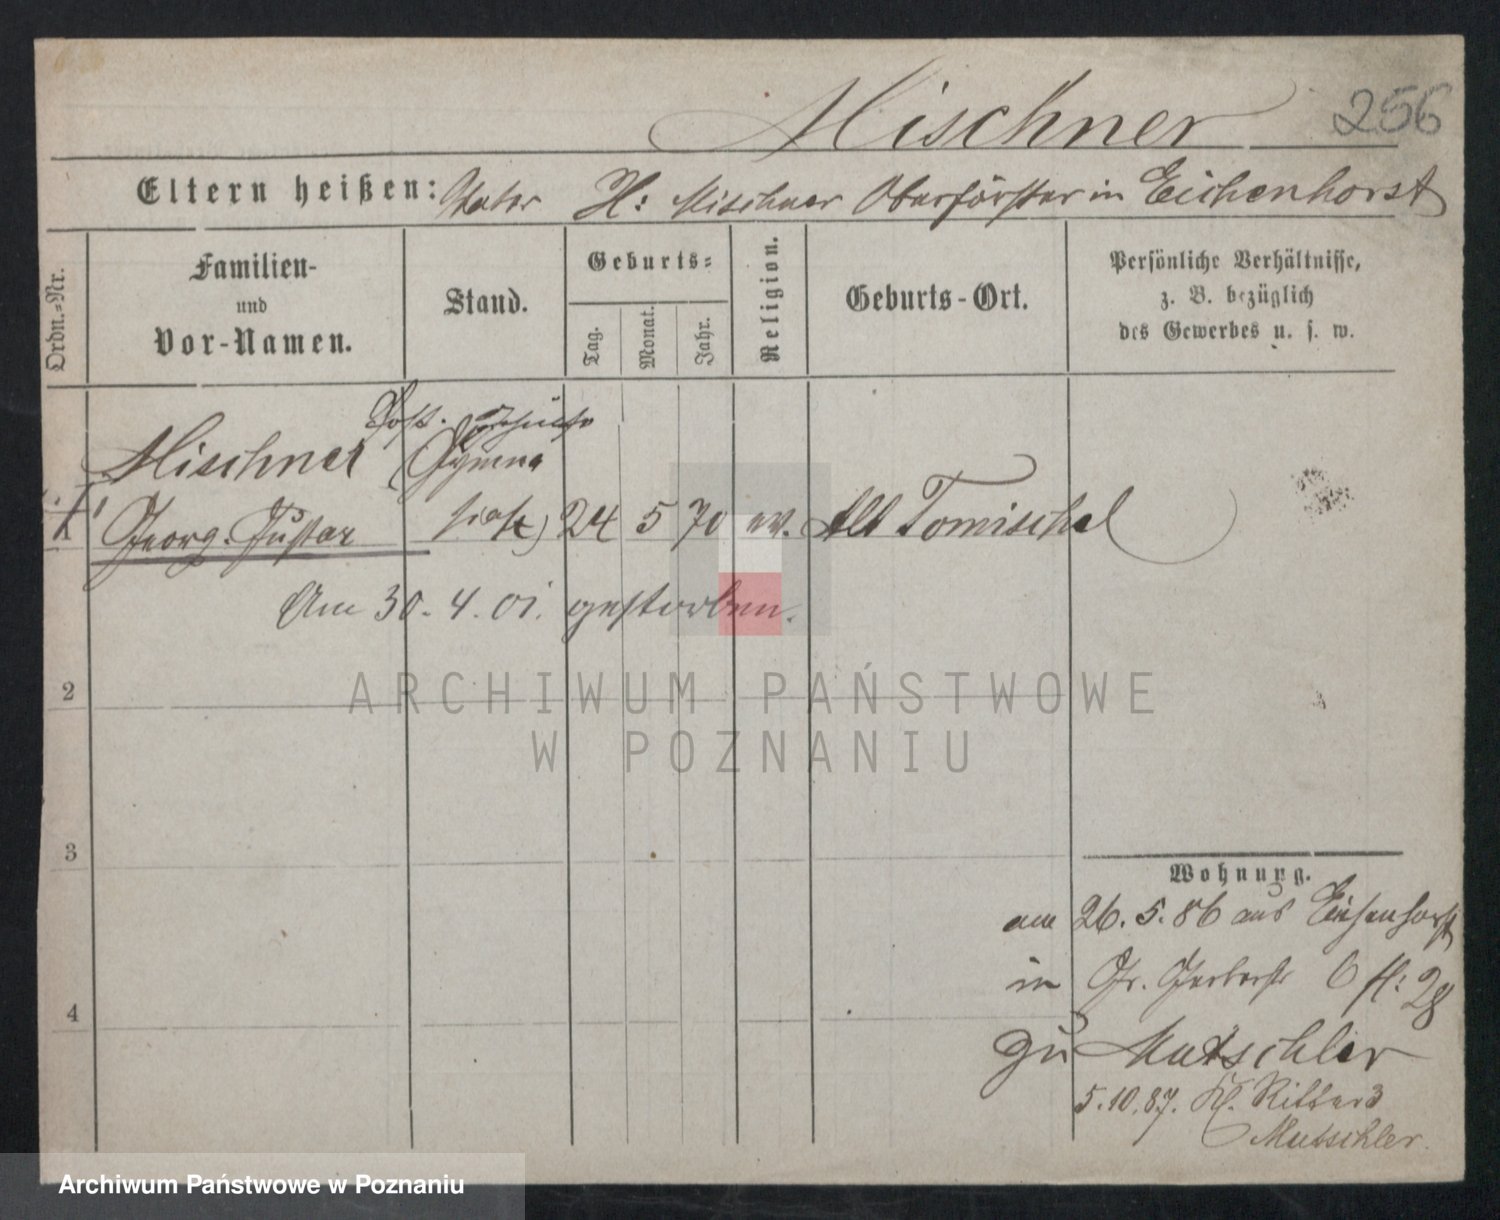 Mischner 256
Eltern heißen: Vater H: Mischner Oberförster in Eichenhorst
Ordn.-Nr.
Familien-
und
Vor-Namen.
Stand.
Geburts-
Tag.
Monat.
Jahr.
Religion.
Geburts-Ort.
Persönliche Verhältnisse,
z. B. bezüglich
des Gewerbes u. s. w.
Post.
Mischner (Gymna
1 Georg Gustav siast) 24 5 70 ev. Alt Tomischel
Am 30. 4. 01. gestorben.
2
ARCHIWUM PAŃSTWOWE
W POZNANIU
3
Wohnung.
am 26. 5. 86 aus Eichenhorst
in Gr. Gerberstr 28
zu Mutschler
5.10.87. Kl. Ritter 3
Mutschler.
4
Archiwum Państwowe w Poznaniu